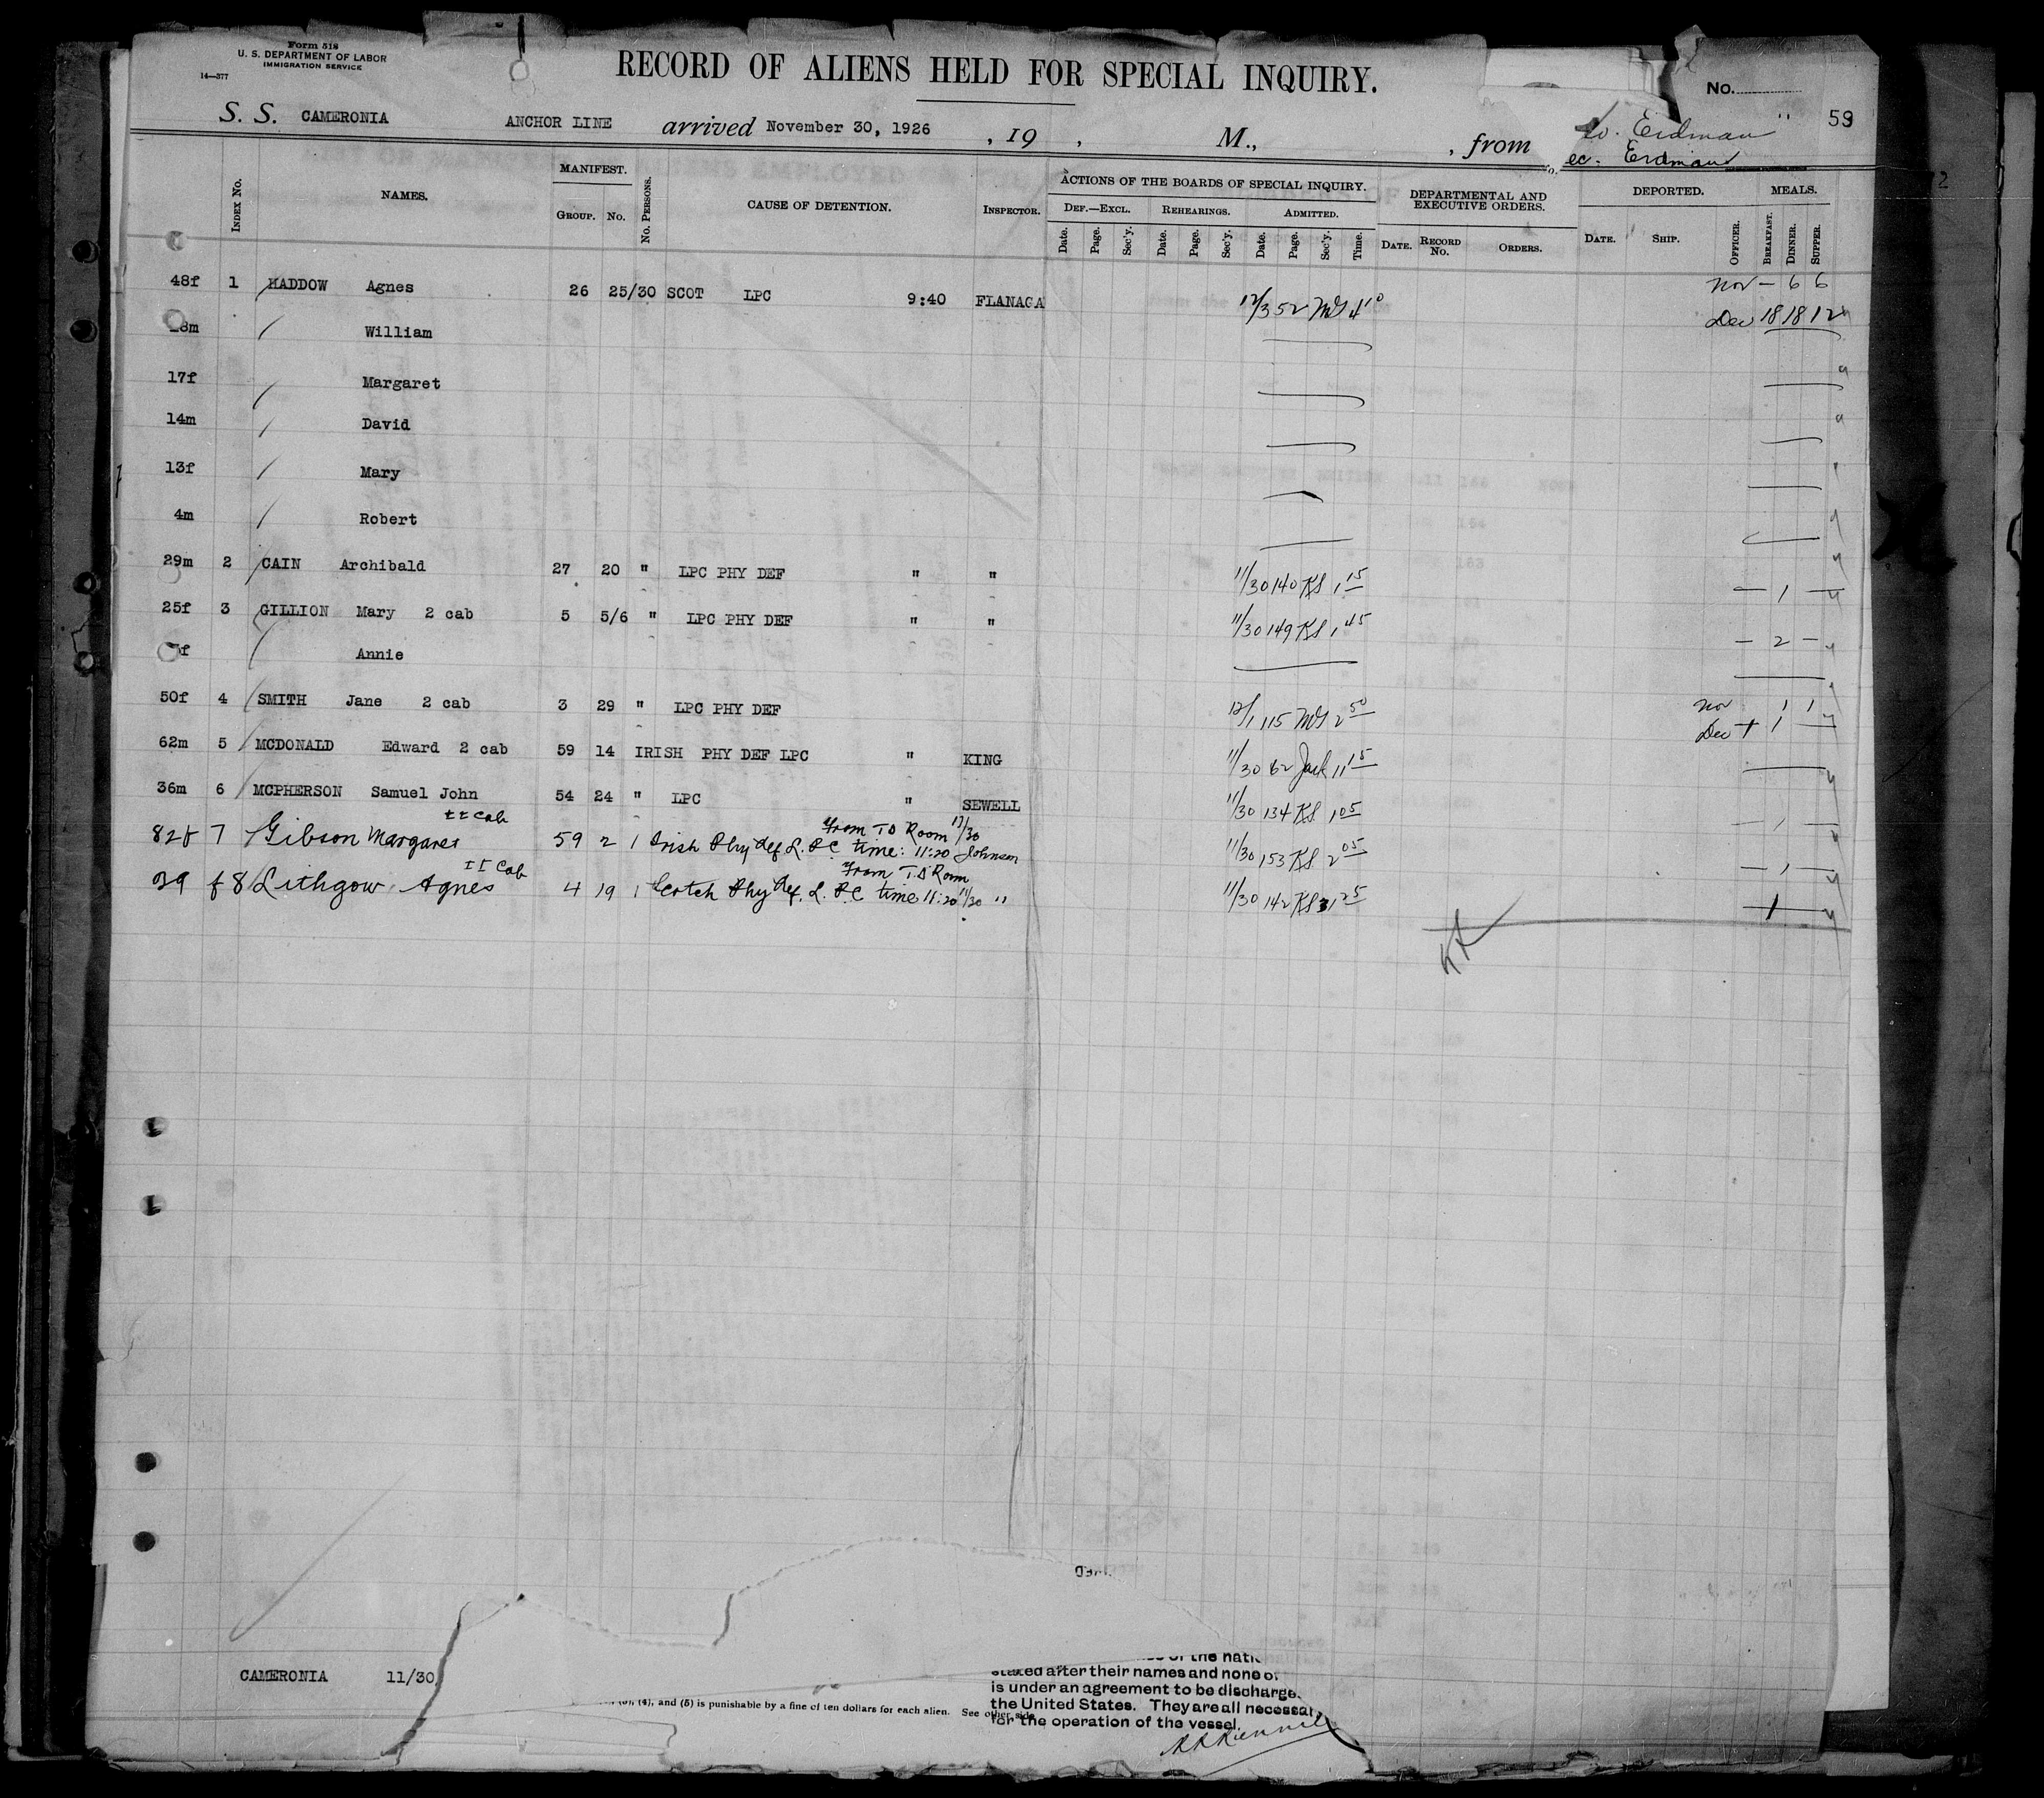 Form 518
U. S. DEPARTMENT OF LABOR
IMMIGRATION SERVICE
14—377
RECORD OF ALIENS HELD FOR SPECIAL INQUIRY.
No.
59
S. S. CAMERONIA ANCHOR LINE arrived November 30, 1926 , 19 , M., , from
Erdman "
ec. Erdman
INDEX No. NAMES. MANIFEST. GROUP. No. No. PERSONS. CAUSE OF DETENTION. INSPECTOR. ACTIONS OF THE BOARDS OF SPECIAL INQUIRY. DEPARTMENTAL AND EXECUTIVE ORDERS. DEPORTED. MEALS.
DEF.—EXCL. REHEARINGS. ADMITTED.
Date. Page. Sec'y. Date. Page. Sec'y. Date. Page. Sec'y. Time. DATE. RECORD No. ORDERS. DATE. SHIP. OFFICER. BREAKFAST. DINNER. SUPPER.
48f 1 HADDOW Agnes 26 25/30 SCOT LPC 9:40 FLANAGA 12/3 52 MS 4 10 Nov — 6 6
Dec 18 18 12
William
17f Margaret
14m David
13f Mary
4m Robert
29m 2 CAIN Archibald 27 20 " LPC PHY DEF " " 11/30 140 KS 1 15 — 1 —
25f 3 GILLION Mary 2 cab 5 5/6 " LPC PHY DEF " " 11/30 149 KS 1 45 — 2 —
Annie
50f 4 SMITH Jane 2 cab 3 29 " LPC PHY DEF 12/1 115 MS 2 50 Nov 1 1
Dec 1 1 —
62m 5 MCDONALD Edward 2 cab 59 14 IRISH PHY DEF LPC " KING 11/30 62 11 15
36m 6 MCPHERSON Samuel John 54 24 " LPC " SEWELL 11/30 134 KS 1 05 — 1 —
II Cab From TD Room 11/30
82f 7 Gibson Margaret 59 2 1 Irish Phy def L.P.C time: 11:20 Johnson 11/30 153 KS 2 05 — 1 —
II Cab From T.D Room
39 f 8 Lithgow Agnes 4 19 1 Scotch Phy def. L.P.C time 11:20 11/30 " 11/30 142 KS 1 25 1
CAMERONIA 11/30
(4), and (5) is punishable by a fine of ten dollars for each alien. See other side
of the nati
stated after their names and none of
is under an agreement to be discharge
the United States. They are all necessar
for the operation of the vessel.